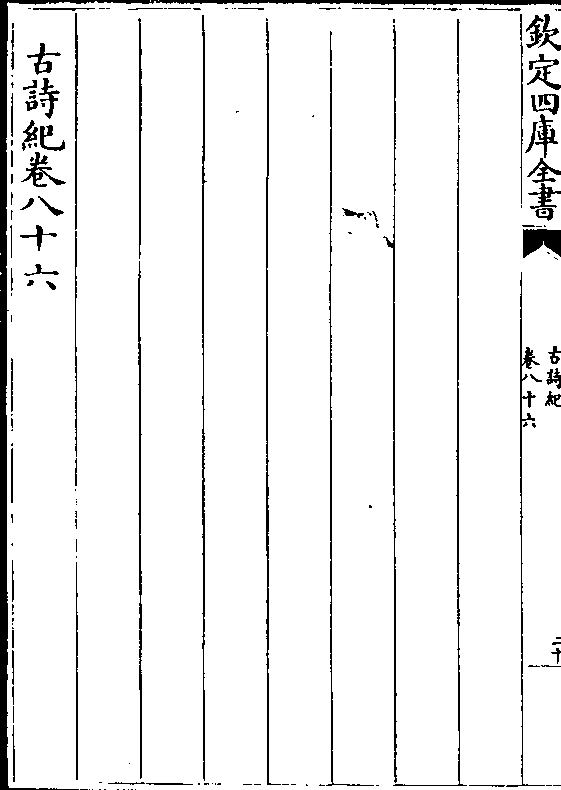 欽定四庫全書
古詩紀
卷八十六
二十
古詩紀卷八十六